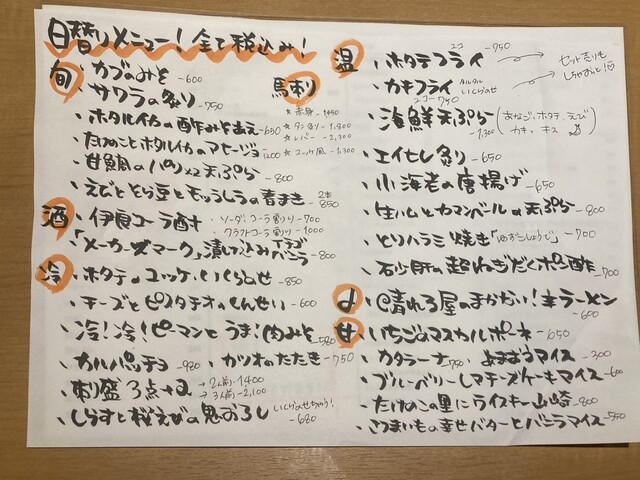 日替りメニュー! 全て税込み!
旬、カブのみぞ -600
、サワラの炙り -750
、ホタルイカの酢みそあえ -650
、たけのことホタルイカのアヒージョ 1200
、甘鯛のパリパリ天ぷら -800
、えびとそら豆とモッツァレラの春まき 2本 -850
馬刺
☆赤身 -1450
☆タン炙り -1,800
☆レバー -2,300
☆ユッケ風 -1,300
酒、伊良コーラ酎 ・ソーダ、コーラ割り -700
・クラフトコーラ割り -1000
、「メーカーズマーク」漬け込み イチゴ バニラ -800
冷、ホタテのユッケ、いくらのせ -850
、チーズとピスタチオのせんべい -600
、冷!冷!ピーマンとうま!肉みそ -580
、カルパッチョ -980 、カツオのたたき -750
、刺盛3点盛 →2人前 -1400
→3人前 -2,100
、しらすと桜えびの鬼おろし いくらのせちゃう! -680
温、ホタテフライ 2コ -750
、カキフライ タルタル いくらのせ 2コ -740
セット売りも しちゃおっと!
、海鮮天ぷら -1,300 (あなご、ホタテ、えび カキ、キス)
、エイヒレ炙り -650
、小海老の唐揚げ -650
、生ハムとカマンベールの天ぷら -800
、とりハラミ焼き「ゆずこしょうで」 -700
、石少肝の超ねぎだくポン酢 -700
〆、晴れる屋のまかない!辛ラーメン -600
甘、いちごのマスカルポーネ -650
、カタラーナ -750 、よまぼうアイス -300
、ブルーベリーレアチーズケーキアイス -600
、たけのこの里にライスキー山崎 -800
、さつまいもの幸せバターとバニラアイス -550